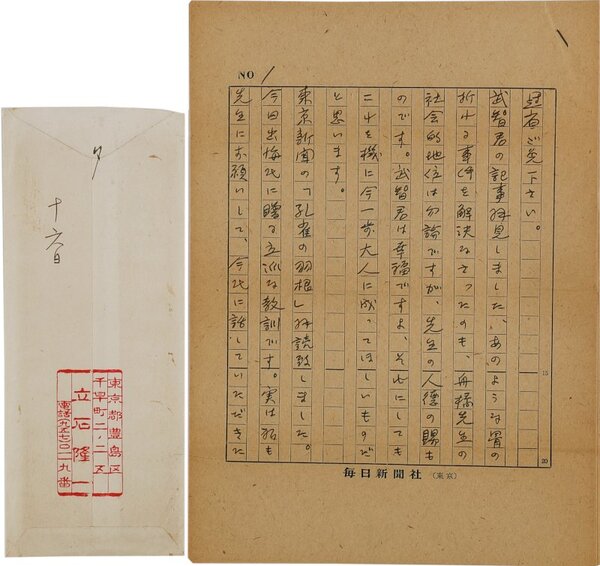 NO 1
冠省ご免下さい。
武智君の記事拝見しました。あのような骨の
折れる事件を解決なさったのも、舟橋先生の
社会的地位は勿論ですが、先生の人徳の賜も
のです。武智君は幸福ですよ、それにしても
これを機に今一歩大人に成ってほしいものだ
と思います。
東京新聞の「孔雀の羽根」拝読致しました。
今日出海氏に贈る立派な教訓です。実は私も
先生にお願いして、今氏に話していただきた
15
20
毎日新聞社 (東京)
〆
十六日
東京都豊島区
千早町二ノ二五
立石隆一